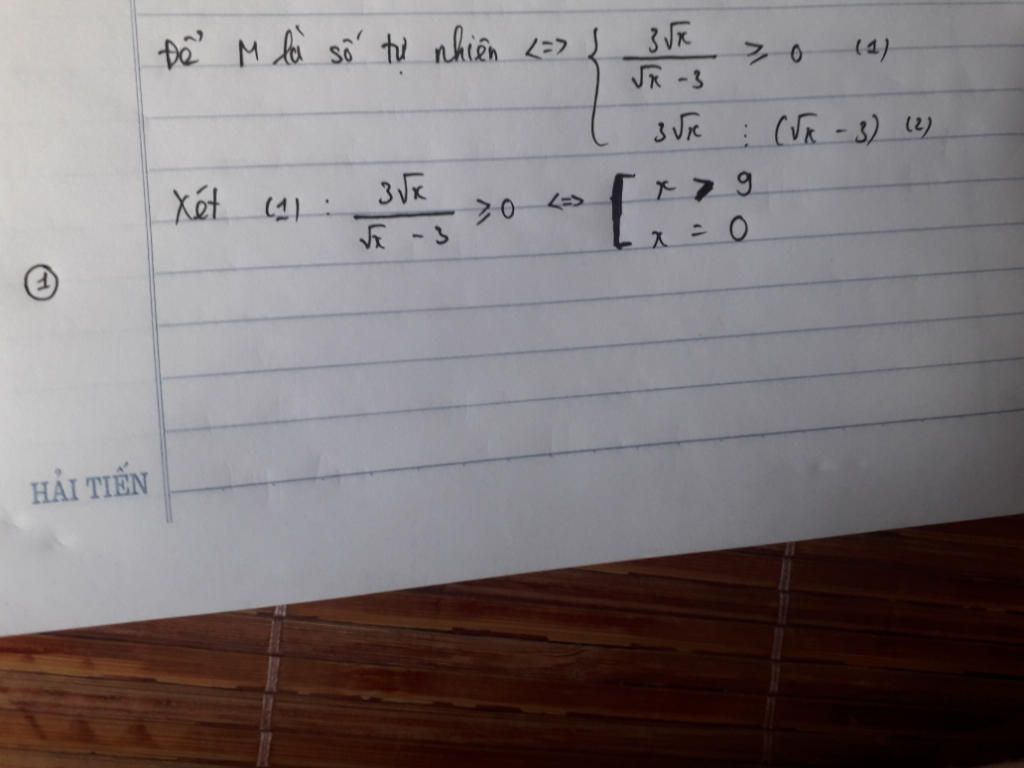 Để M là số tự nhiên <=> { 3√x / (√x - 3) ≥ 0 (1)
3√x ⋮ (√x - 3) (2)
Xét (1) : 3√x / (√x - 3) ≥ 0 <=> [ x > 9
x = 0
1
HẢI TIẾN